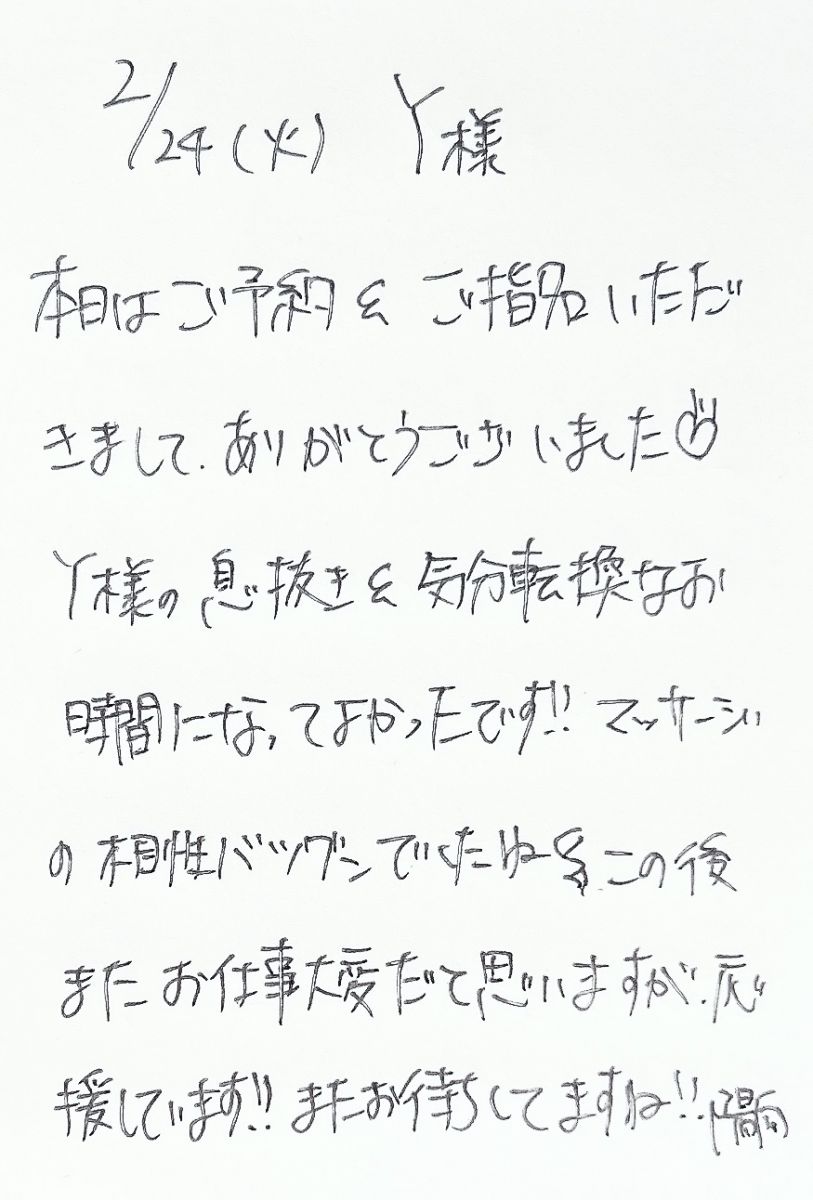 2/24(火) Y様
本日はご予約&ご指名いただ
きまして、ありがとうございました
Y様の息抜き&気分転換なお
時間になってよかったです!! マッサージ
の相性バツグンでしたね この後
またお仕事大変だと思いますが、応
援しています!! またお待ちしてますね!!